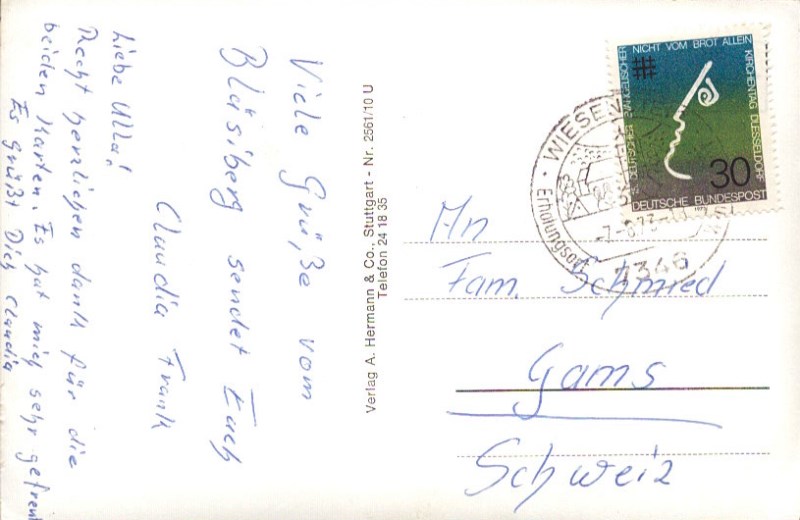 Liebe Ulla!
Recht herzlichen dank für die
beiden Karten. Es hat mich sehr gefreut
Es grüßt Dich Claudia
Viele Grüße vom
Bläsiberg sendet Euch
Claudia Frank
Verlag A. Hermann & Co., Stuttgart - Nr. 2561/10 U
Telefon 24 18 35
15. DEUTSCHER EVANGELISCHER
NICHT VOM BROT ALLEIN
KIRCHENTAG DUESSELDORF
30
1973
DEUTSCHE BUNDESPOST
WIESEN
Erholungsort
7346
An
Fam. Schmied
Gams
Schweiz